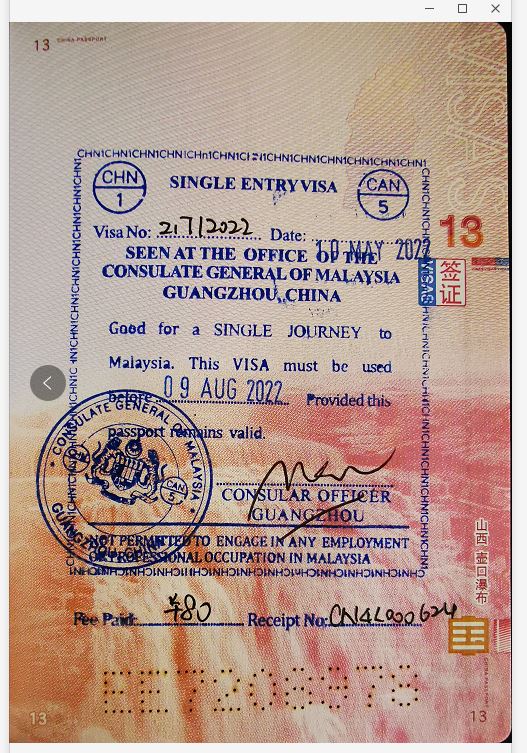 13 CHINA PASSPORT
VISAS
CHN1CHN1CHN1CHN1CHN1CHN1CHN1CHN1CHN1CHN1CHN1CHN1
CHN
1
SINGLE ENTRY VISA
CAN
5
Visa No: 217/2022 Date: 10 MAY 2022
13
SEEN AT THE OFFICE OF THE
CONSULATE GENERAL OF MALAYSIA
GUANGZHOU, CHINA
VISAS
签证
Good for a SINGLE JOURNEY to
Malaysia. This VISA must be used
before 09 AUG 2022 Provided this
passport remains valid.
CONSULATE GENERAL OF MALAYSIA
CAN
5
CONSULAR OFFICER
GUANGZHOU
NOT PERMITTED TO ENGAGE IN ANY EMPLOYMENT
OR PROFESSIONAL OCCUPATION IN MALAYSIA
山西 壶口瀑布
Fee Paid: ¥80 Receipt No: CN4L000624
EE7206978
13
13